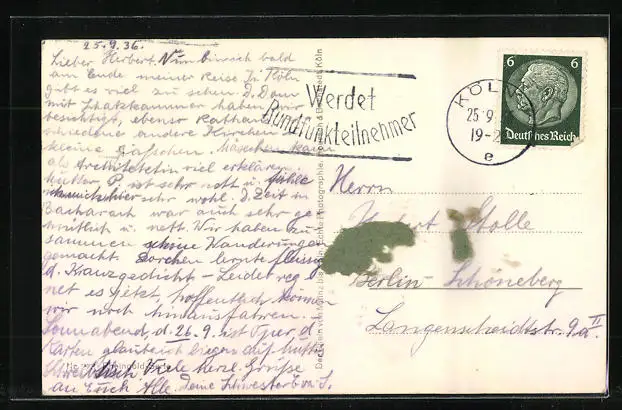 25.9.36.
Lieber Herbert. Nun bin ich bald
am Ende meiner Reise. In Köln
gibt es viel zu sehen. D. Dom
mit Schatzkammer haben wir
besichtigt, ebenso Rathaus
andere Kirchen
kleine Gässchen.
als Architektin viel erklären
Mutter P. ist sehr nett u. fühle
sehr wohl. D. Zeit in
Bacharach war auch sehr ge
mütlich u. nett. Wir haben zu
sammen schöne Wanderungen
gemacht. Dorchen lernte fleissig
d. Kranzgedicht - Leider reg
net es jetzt, hoffentlich können
wir noch hinausfahren.
Sonnabend, d. 26.9. ist Oper, d.
Karten glaube ich liegen auf Mutters
Viele herzl. Grüße
an Euch Alle. Deine Schwester Eva S.
Werdet
Rundfunkteilnehmer
KÖLN
25.9
19-2
e
6 6
Deutsches Reich
Herrn
Stolle
Berlin-Schöneberg
Langenscheidtstr. 9a II